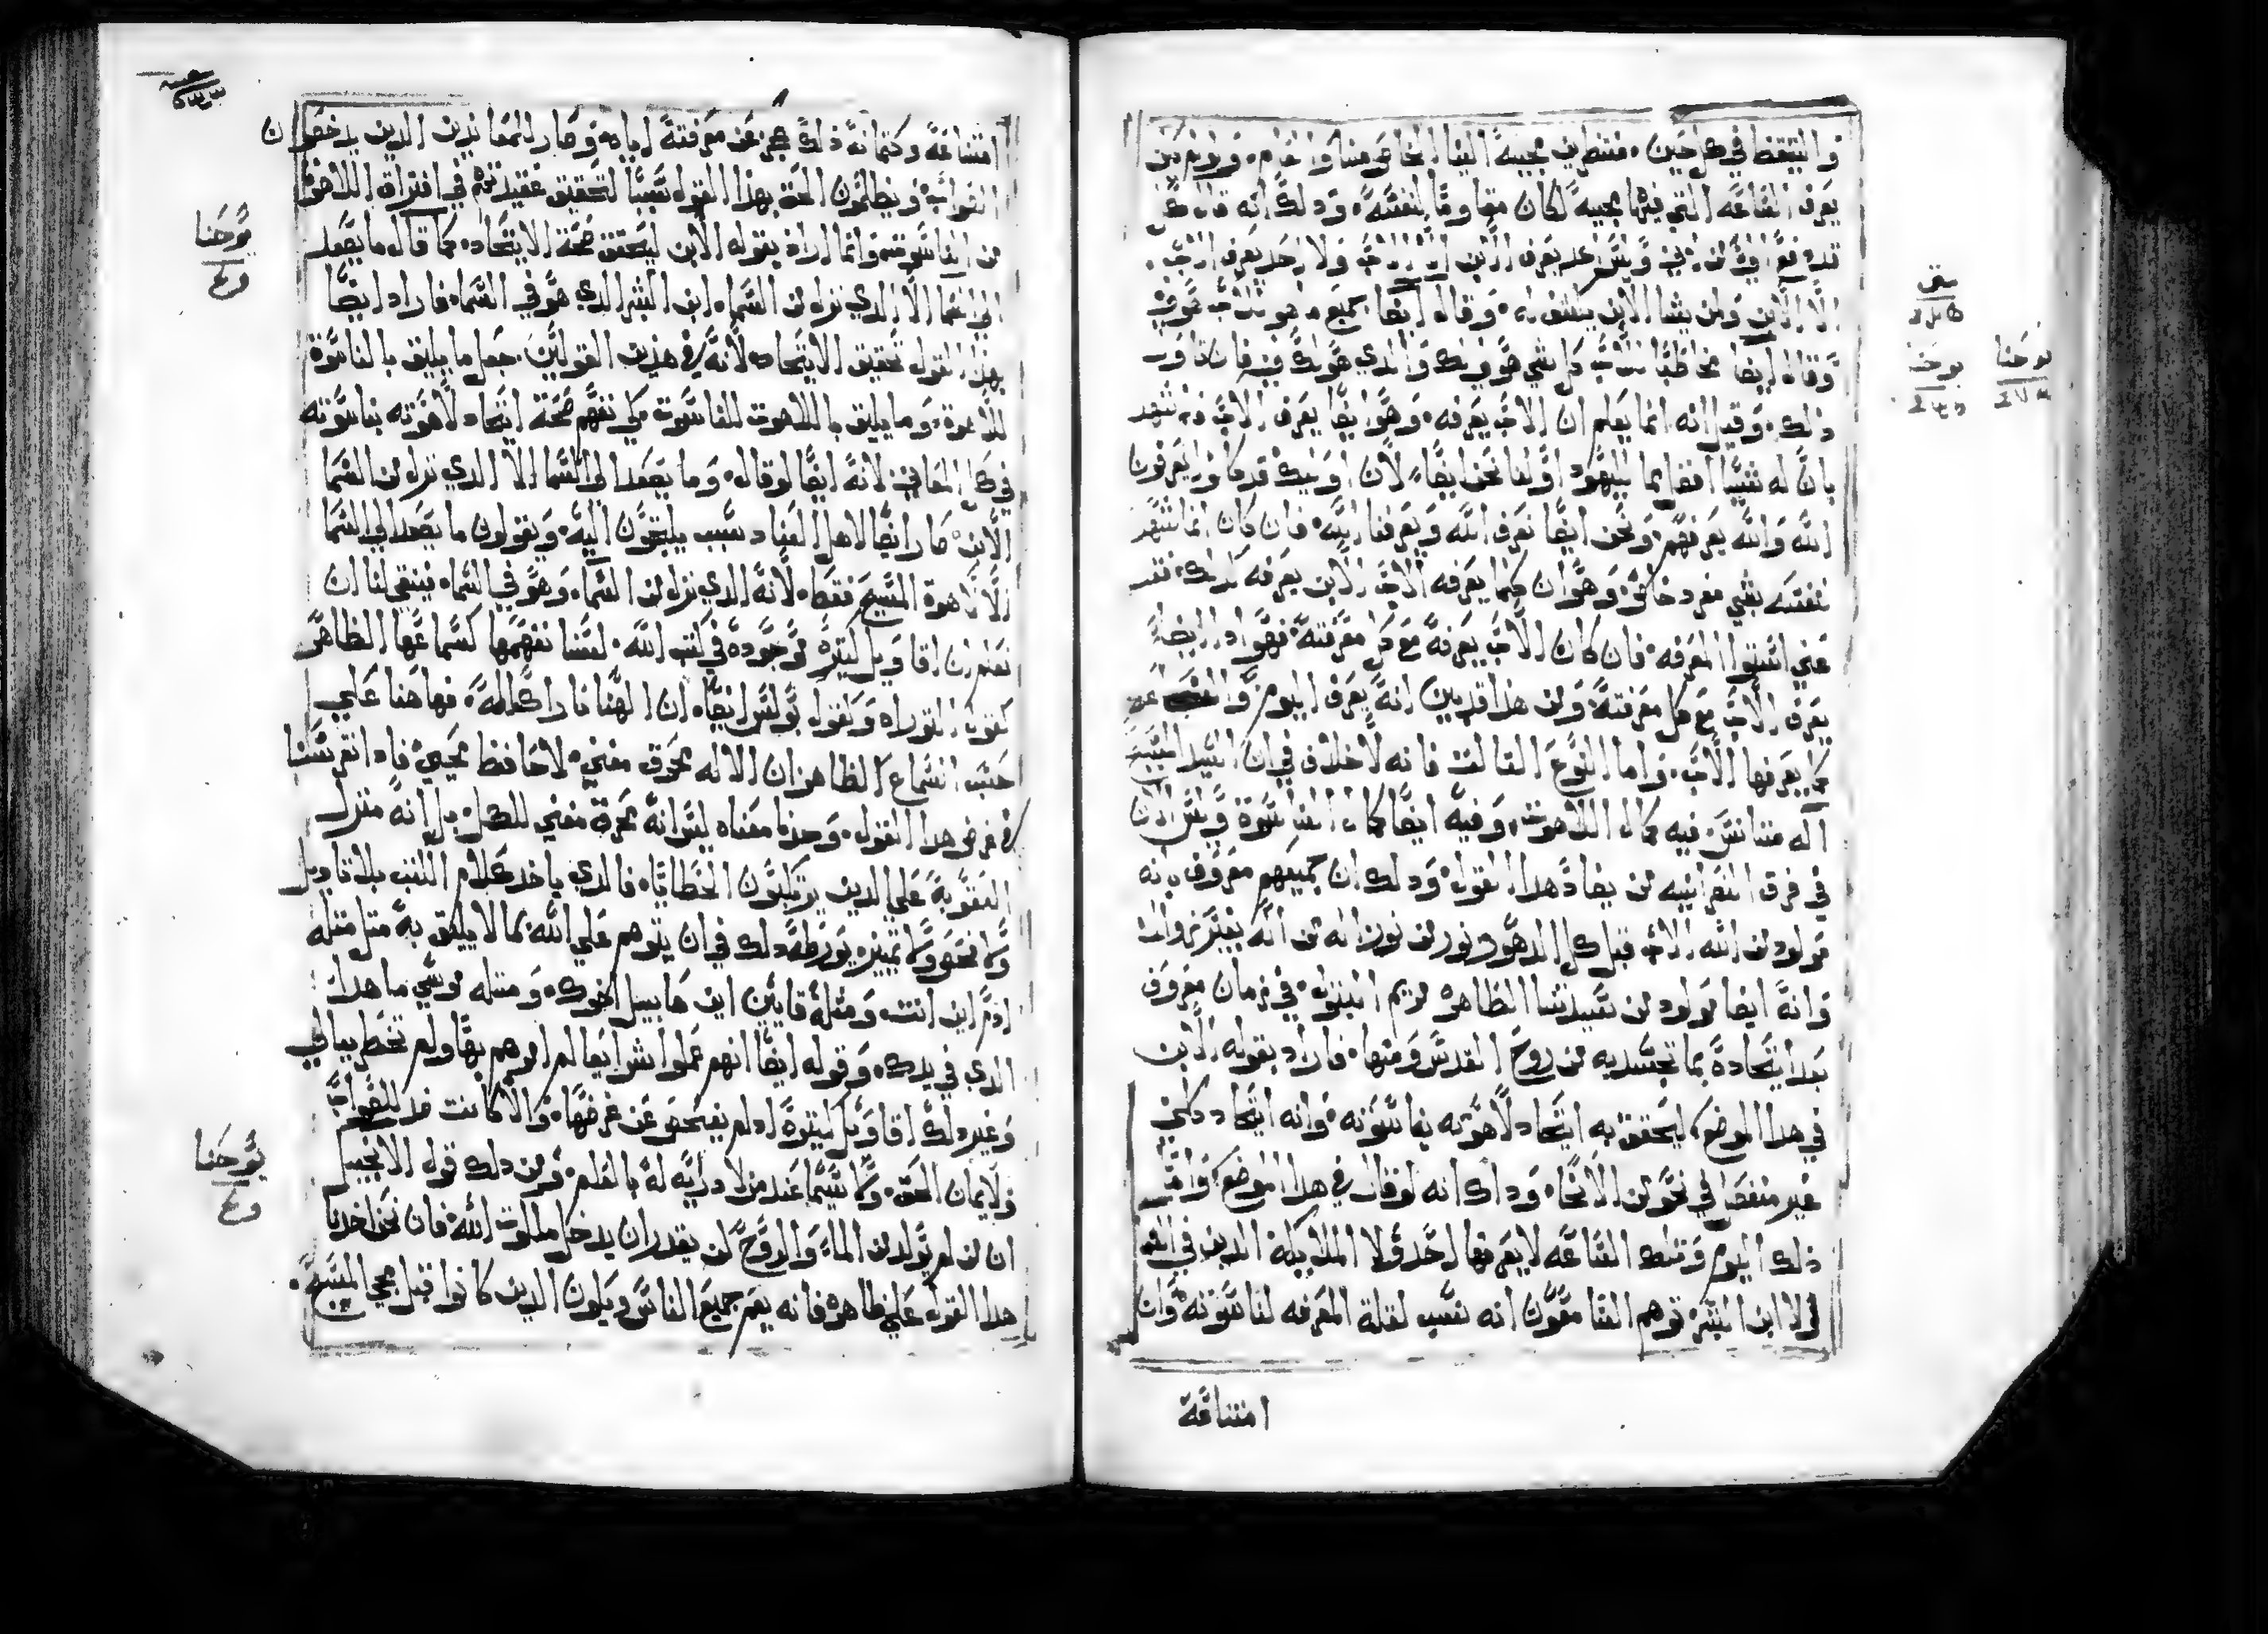 والتيقظ في كل حين. منتظرين مجيبه الينا الخاص منا والعام. ولو لم يكن
يعرف الساعه التي فيها مجيبه لكان مقاوما لنفسه. ودلك انه قال
وليس احد يعرف الابن الا الاب ولا احد يعرف الاب.
الا الابن ولمن يشا الابن يكشف له. وقال ايضا جميع ما هو للاب هو لي
وقال ايضا مخاطبا للاب كل شي هو لي لك والدي هو لك لي فان كان
دلك. وقيل انه انما يعلم ان الاب يعرفه. وهو ايضا يعرف الاب
بان له شيا افضل مما لليهود اولنا نحن ايضا. لان اوليك قد كانوا يعرفون
الله والله يعرفهم. ونحن ايضا نعرف الله ويعرفنا الله. فان كان انما شهر
نفسه بشي مفرد خاص وهو ان كما يعرفه الاب الابن يعرفه كدلك فقد
عني اشتوا المعرفه. فان كان الاب يعرفه مع كل معرفته. فهو اذا ايضا
يعرف الاب مع كل معرفته. ومن هذا قد يبين انه يعرف اليوم والساعه
كما يعرفها الاب. واما النوع الثالث فانه لا خلاف في ان السيد المسيح
اله متانس فيه كمال اللاهوت. وفيه ايضا كمال الناسوة وليس الان
في فرق النصرانيه من يضاد هدا القول. ودلك ان جميعهم معروف بانه
مولود من الله الاب قبل كل الدهور نور من نور اله من اله بغير زوال
وانه ايضا مولود من سيدتنا الطاهره مريم البتول. في زمان معروف
بعد اتحاده بما تجسد به من روح القدس ومنها. فاراد بقوله الابن
في هدا الموضع ليحقق به اتحاد لاهوته بناسوته. وانه اتحاد كلي
غير منفصل في نحو من الانحاء. وداك انه لو قال في هدا الموضع
دلك اليوم وتلك الساعه لا يعرفها احد ولا الملايكه الدين في السما
ولا ابن البشر توهم السامعون انه نسب لقلة المعرفه لناسوته وان
امتناعه
متى
يوحنا
يوحنا
امتناعه وكتمانه دلك عجز عن معرفته اياه وصار للمعاندين الدين يدحضون
الصواب ويظلمون الحق بهذا القول سببا لتحقيق عقيدتهم في افتراق اللاهوت
من الناسوت وانما اراد بقوله الابن ليتحقق صحة الاتحاد. كما قال ما يصعد
الى السما الا الدي نزل من السما. ابن البشر الدي هو في السما. فاراد ايضا
بهدا القول تحقيق الاتحاد لانه في هذين القولين جعل ما يليق بالناسوة
للاهوة. وما يليق باللاهوت للناسوت كي نفهم صحة اتحاد لاهوته بناسوته
في كل المعاني لانه ايضا لو قال. وما يصعد الي السما الا الدي نزل من السما
الابن صار ايضا لاهل العناد سبب يلتجون اليه. ويقولون ما يصعد الي السما
الا لاهوة المسيح فقط. لانه الدي نزل من السما. وهو في السما. فينبغي لنا ان
نعلم ان اقاويل كتيره موجوده في كتب الله. لسنا نفهمها كسماعها الظاهر
كقول التوراه وكقول بولس ايضا. ان الهنا نار اكله. فها هنا علي
حسب استماع الظاهر ان الاله محرق مفني. لا حافظ محيي. فاد انفرسنا
في غرض هدا القول. وجدنا معناه ليس انه محرق مفني للكل. بل انه منزل
العقوبة علي الدين يرتكبون الخطايا. فالدي ياخد كلام الكتب بلا تاويل
ولا فحص ولا تمييز يورطه دلك في ان يتوهم علي الله بما لا يليق به مثل مثله
ادم اين انت. ومثله قايين اين هابيل اخوك. ومتله موسي ما هدا
الدي في يدك. وقوله ايضا انهم عملوا شرا بعالم امرهم بها ولم تخطر ببالي
وغير دلك اقاويل كتيرة ادا لم يفحص عن غرضها. والا كانت ضد للصواب
ولايمان الحق. ولا سيما عند من لا دراية له بالعلم. ومن دلك قول الانجيل
ان لن لم يولد من الماء والروح لن يقدر ان يدخل ملكوت الله. فان نحن اخدنا
هدا القول علي ظاهره فانه يعم جميع الناس ويكون الدين كانوا قبل مجي المسيح.
يوحنا
يوحنا